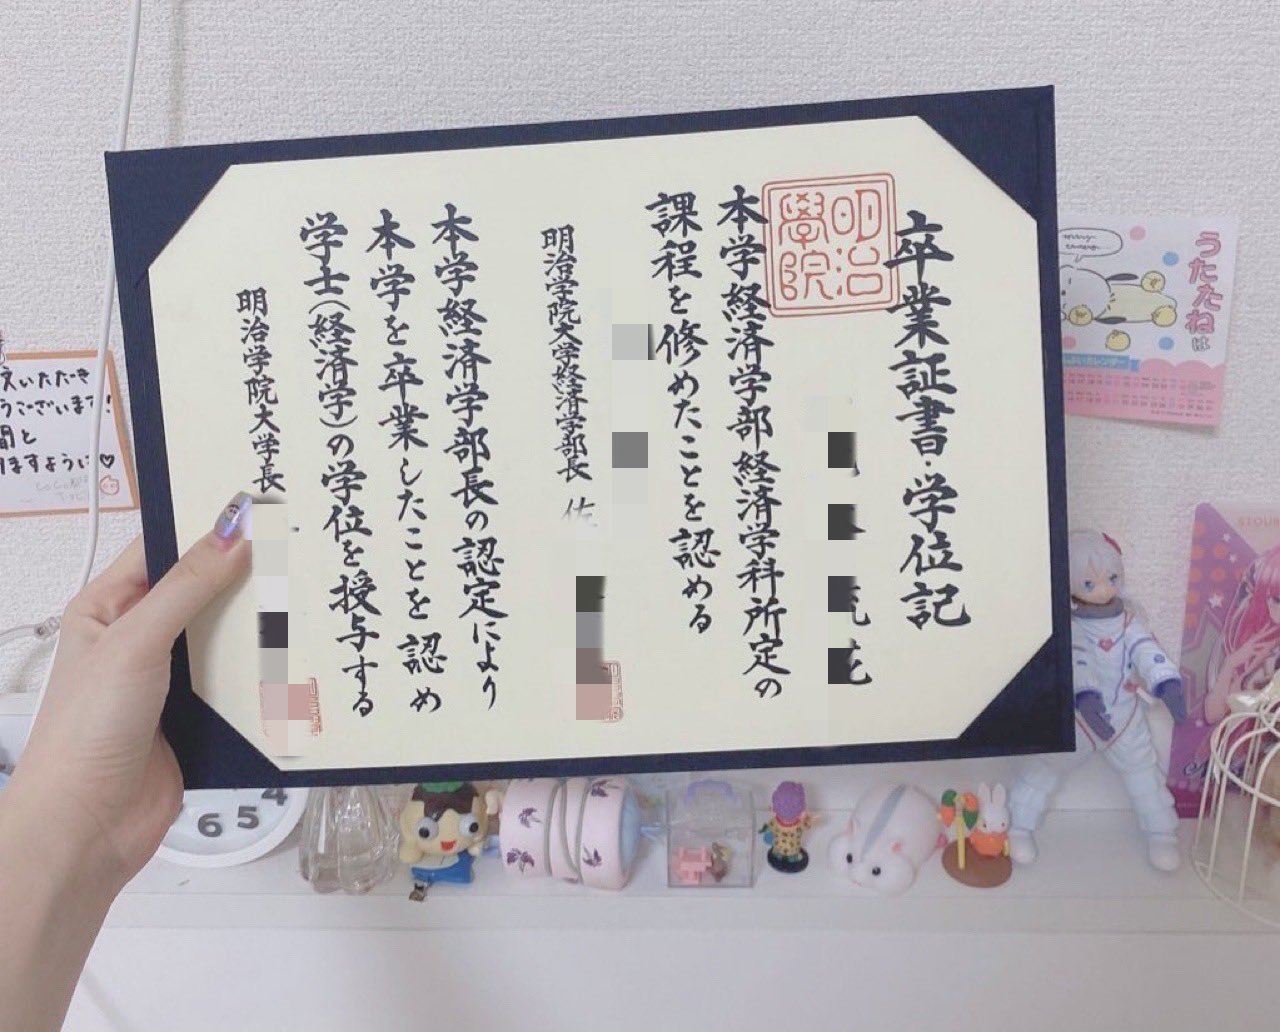 卒業証書・学位記
明治
學院
本学経済学部経済学科所定の
課程を修めたことを認める
明治学院大学経済学部長 佐
本学経済学部長の認定により
本学を卒業したことを認め
学士(経済学)の学位を授与する
明治学院大学長
うたたねは
いただき
うございます!
と
りますように♡
6 5 4